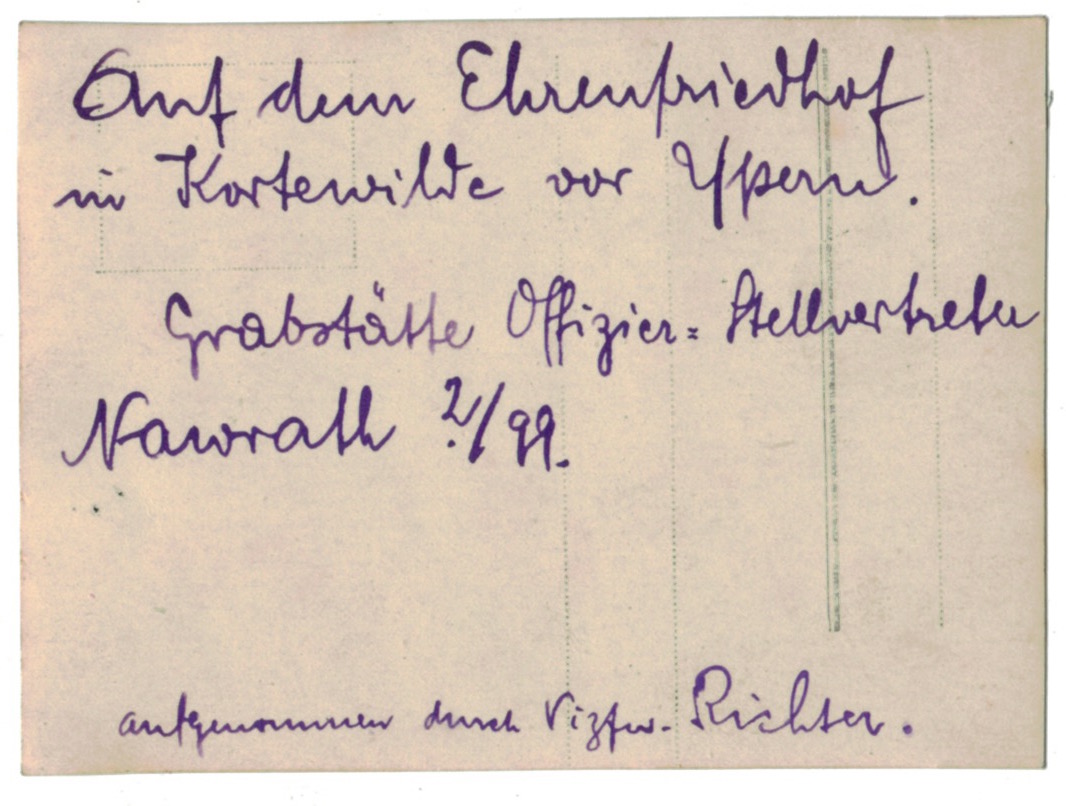 Auf dem Ehrenfriedhof
in Kortewilde vor Ypern.
Grabstätte Offizier=Stellvertreter
Nawrath 2./99.
aufgenommen durch Vizfw. Richter.